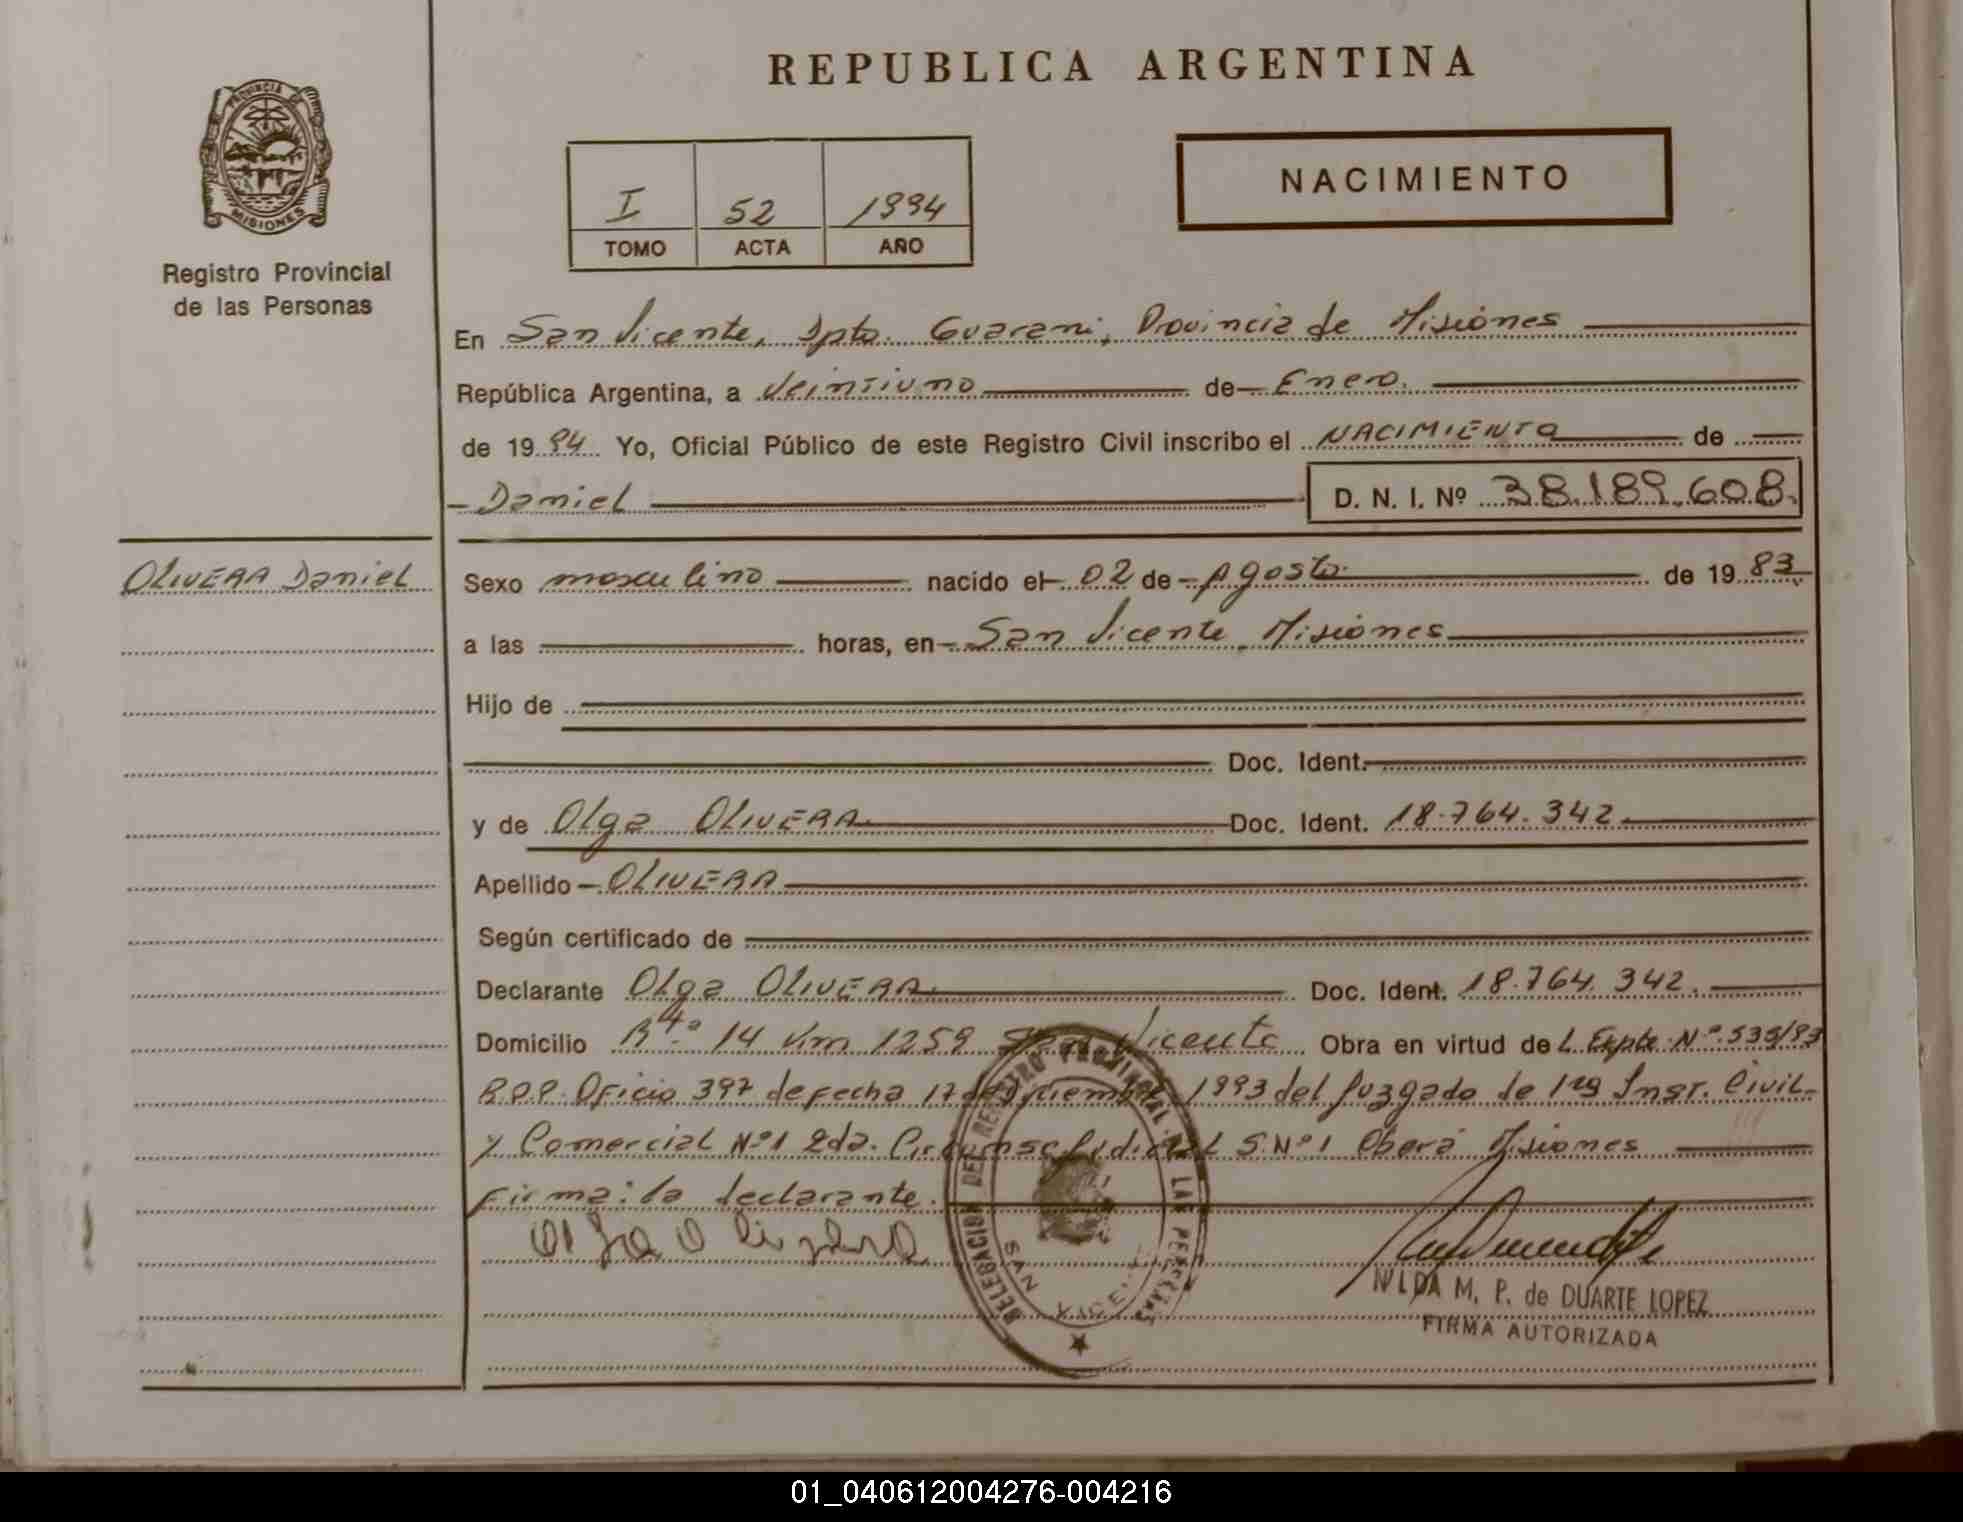 REPUBLICA ARGENTINA
PROVINCIA DE
MISIONES
Registro Provincial
de las Personas
I 52 1994
TOMO ACTA AÑO
NACIMIENTO
En San Vicente, Dpto. Guarani, Provincia de Misiones
República Argentina, a Veintiuno de Enero.
de 1994 Yo, Oficial Público de este Registro Civil inscribo el NACIMIENTO de
Daniel D. N. I. Nº 38.189.608.
OLIVERA Daniel
Sexo masculino nacido el 02 de Agosto de 1983
a las horas, en San Vicente Misiones
Hijo de
Doc. Ident.
y de Olga OLIVERA Doc. Ident. 18.764.342
Apellido OLIVERA
Según certificado de
Declarante Olga OLIVERA Doc. Ident. 18.764.342.
Domicilio Rta. 14 Km 1259 San Vicente Obra en virtud de L. Expte. Nº 535/93
R.P.P. Oficio 397 de fecha 17 de Diciembre 1993 del Juzgado de 1ra Inst. Civil
y Comercial Nº 1 2da. Circunsc. Judicial S. Nº 1 Oberá Misiones
Firma: la declarante.
Olga Olivera
DELEGACION DEL REGISTRO PROVINCIAL DE LAS PERSONAS
SAN VICENTE
NILDA M. P. de DUARTE LOPEZ
FIRMA AUTORIZADA
01_040612004276-004216